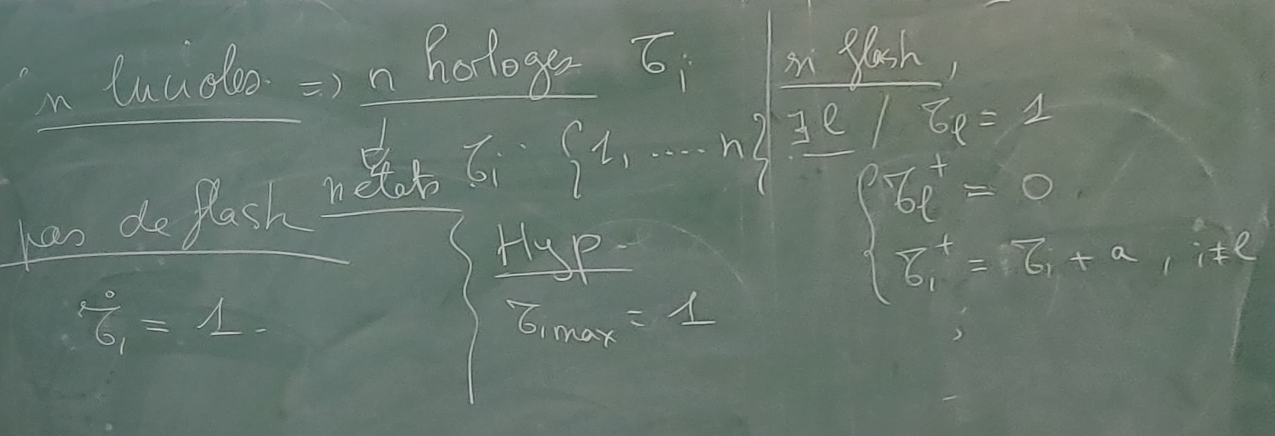 n lucioles => n hologes τᵢ
↓
n états τᵢ : {1, ..... n}
pas de flash
τ̇ᵢ = 1.
Hyp
τᵢ max = 1
si flash,
∃ l / τₗ = 1
{ τₗ⁺ = 0
τᵢ⁺ = τᵢ + a , i ≠ l